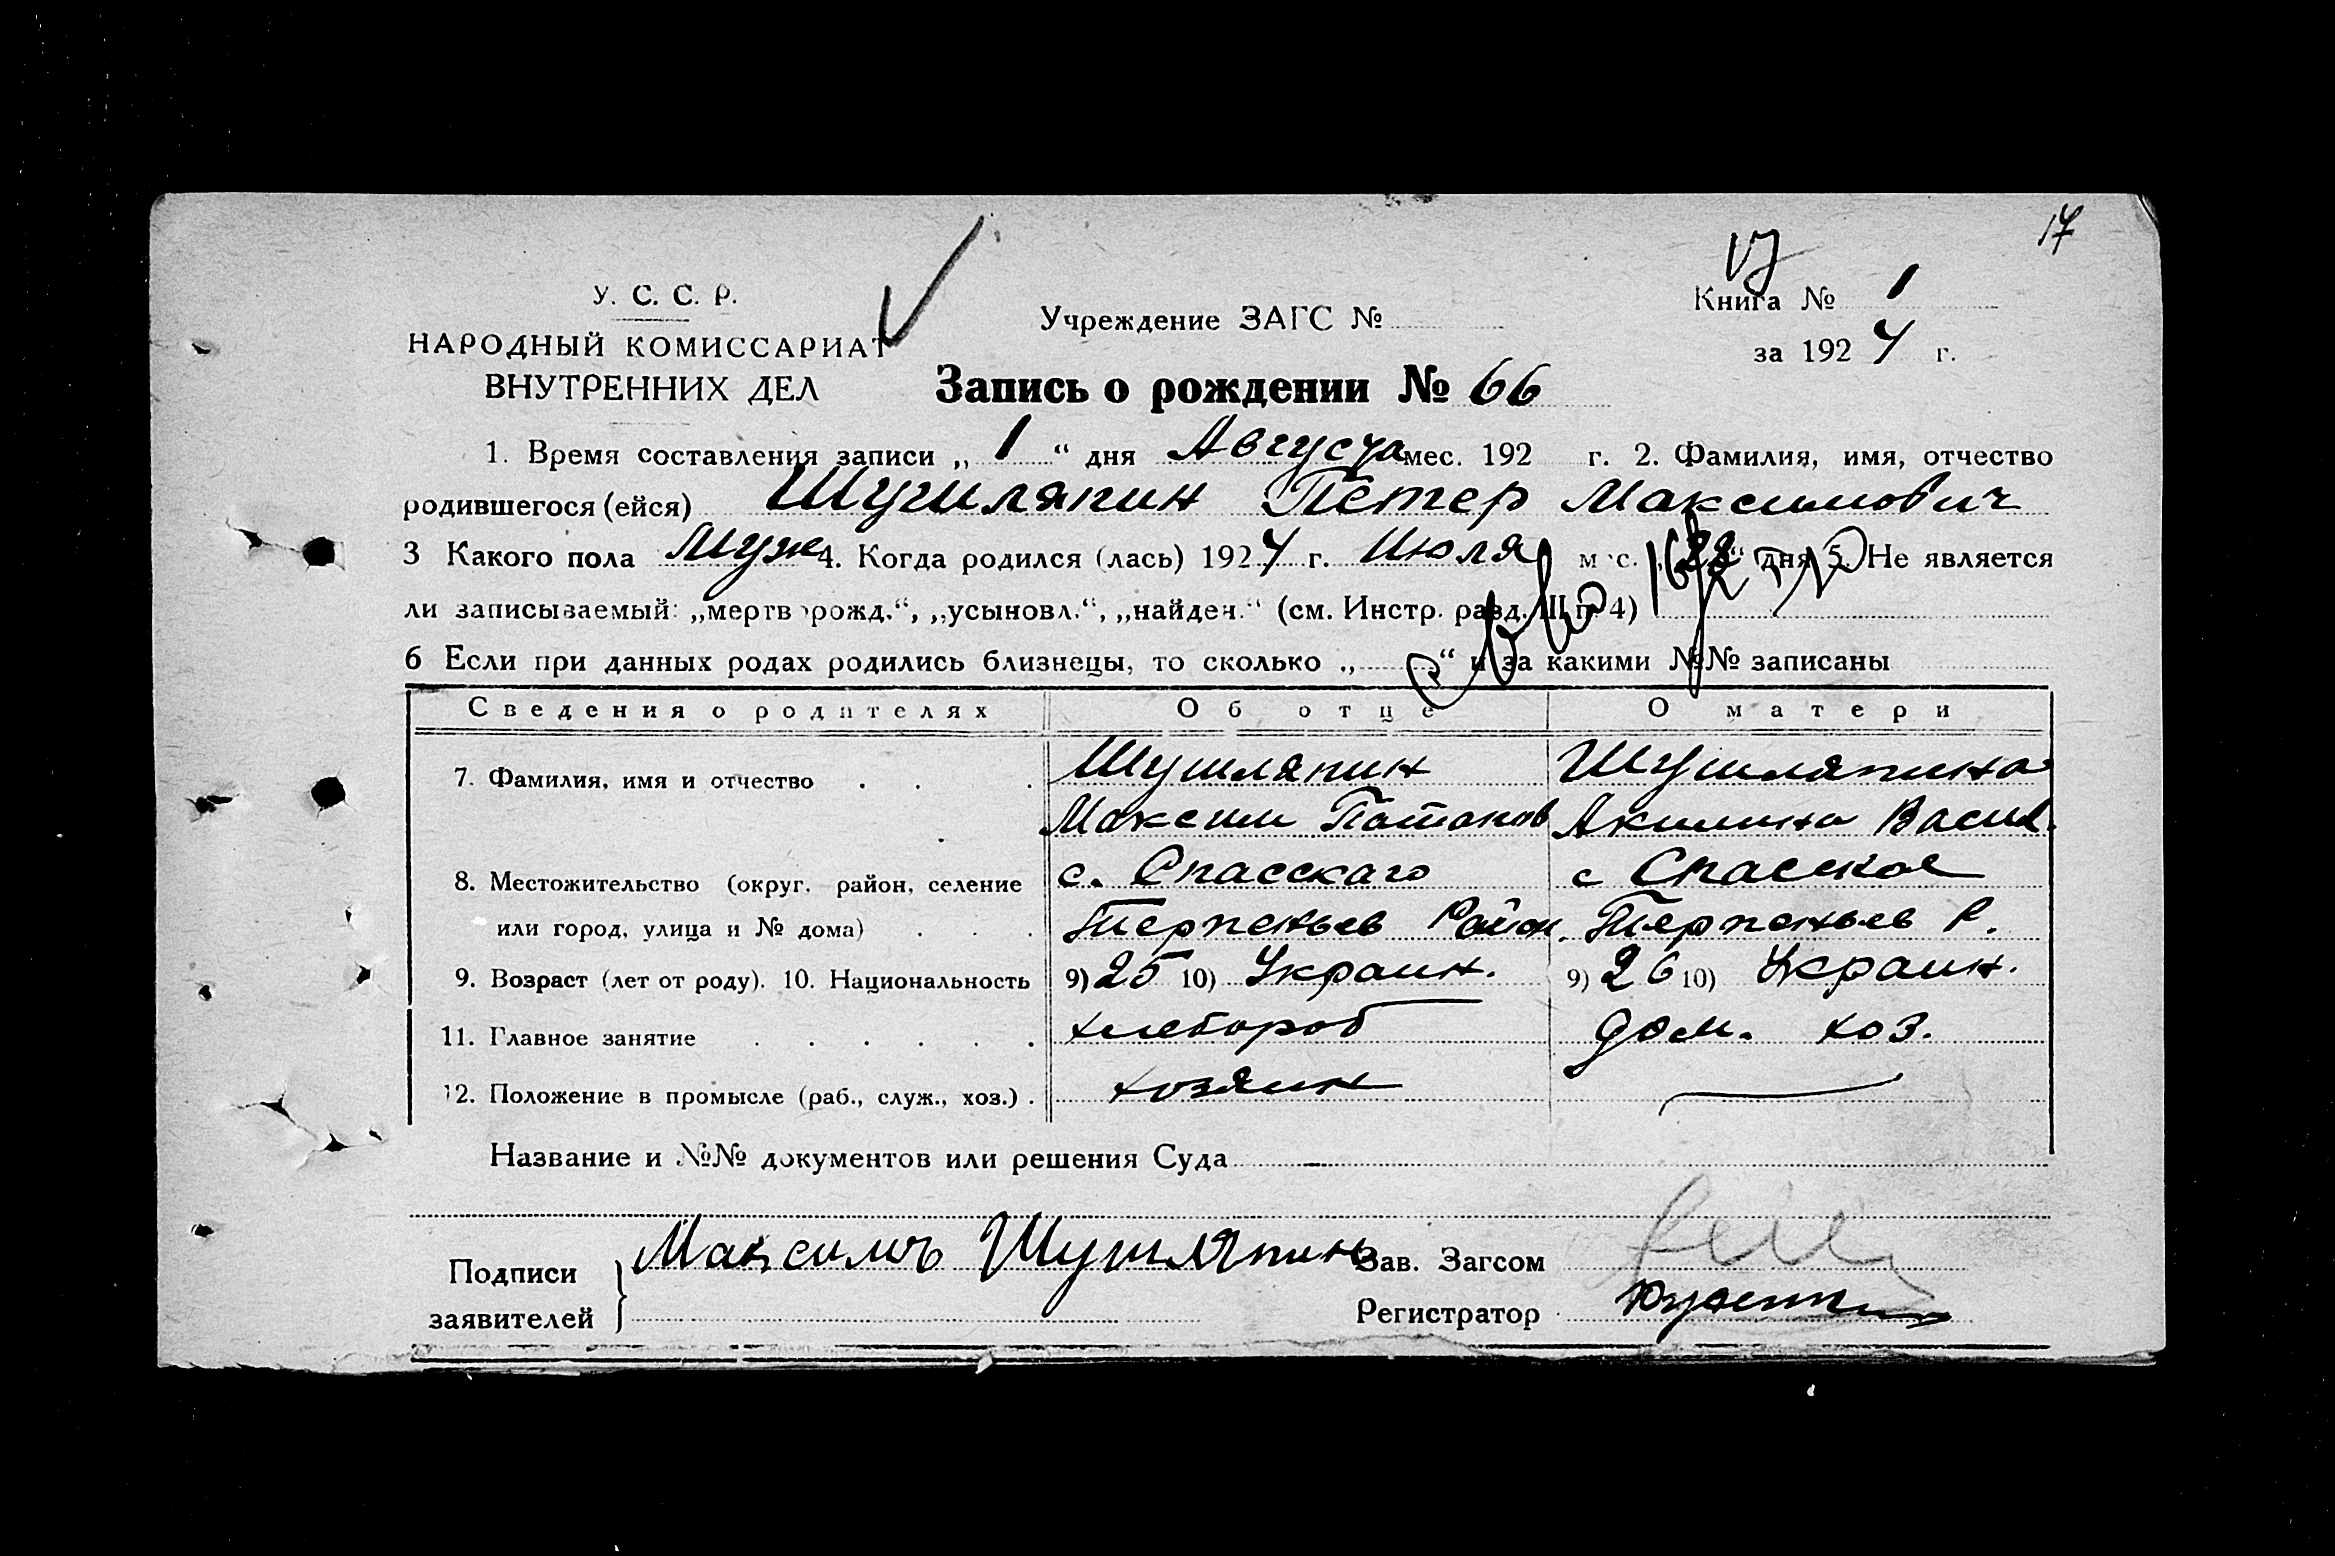 17
У. С. С. Р.
НАРОДНЫЙ КОМИССАРИАТ
ВНУТРЕННИХ ДЕЛ
Учреждение ЗАГС №
Книга № 1
за 1924 г.
Запись о рождении № 66
1. Время составления записи „ 1 “ дня Августа мес. 192 г. 2. Фамилия, имя, отчество
родившегося (ейся) Шушляпин Петер Максимович
3 Какого пола Муж 4. Когда родился (лась) 1924 г. Июля мес. дня 5. Не является
ли записываемый: „мертворожд.“, „усыновл.“, „найден.“ (см. Инстр. разд. III п. 4)
6 Если при данных родах родились близнецы, то сколько „ “ и за какими №№ записаны
Сведения о родителях Об отце О матери
7. Фамилия, имя и отчество . . . Шушляпин Шушляпина
Максим Потапов Акилина Васил.
8. Местожительство (округ, район, селение с. Спасскаго с Спаское
или город, улица и № дома) . . . Терпеньев Район. Терпеньев Р.
9. Возраст (лет от роду). 10. Национальность 9) 25 10) Украин. 9) 26 10) Украин.
11. Главное занятие . . . . . . хлебороб дом. хоз.
12. Положение в промысле (раб., служ., хоз.) . хозяин
Название и №№ документов или решения Суда
Подписи заявителей
Максимъ Шушляпин
Зав. Загсом
Регистратор